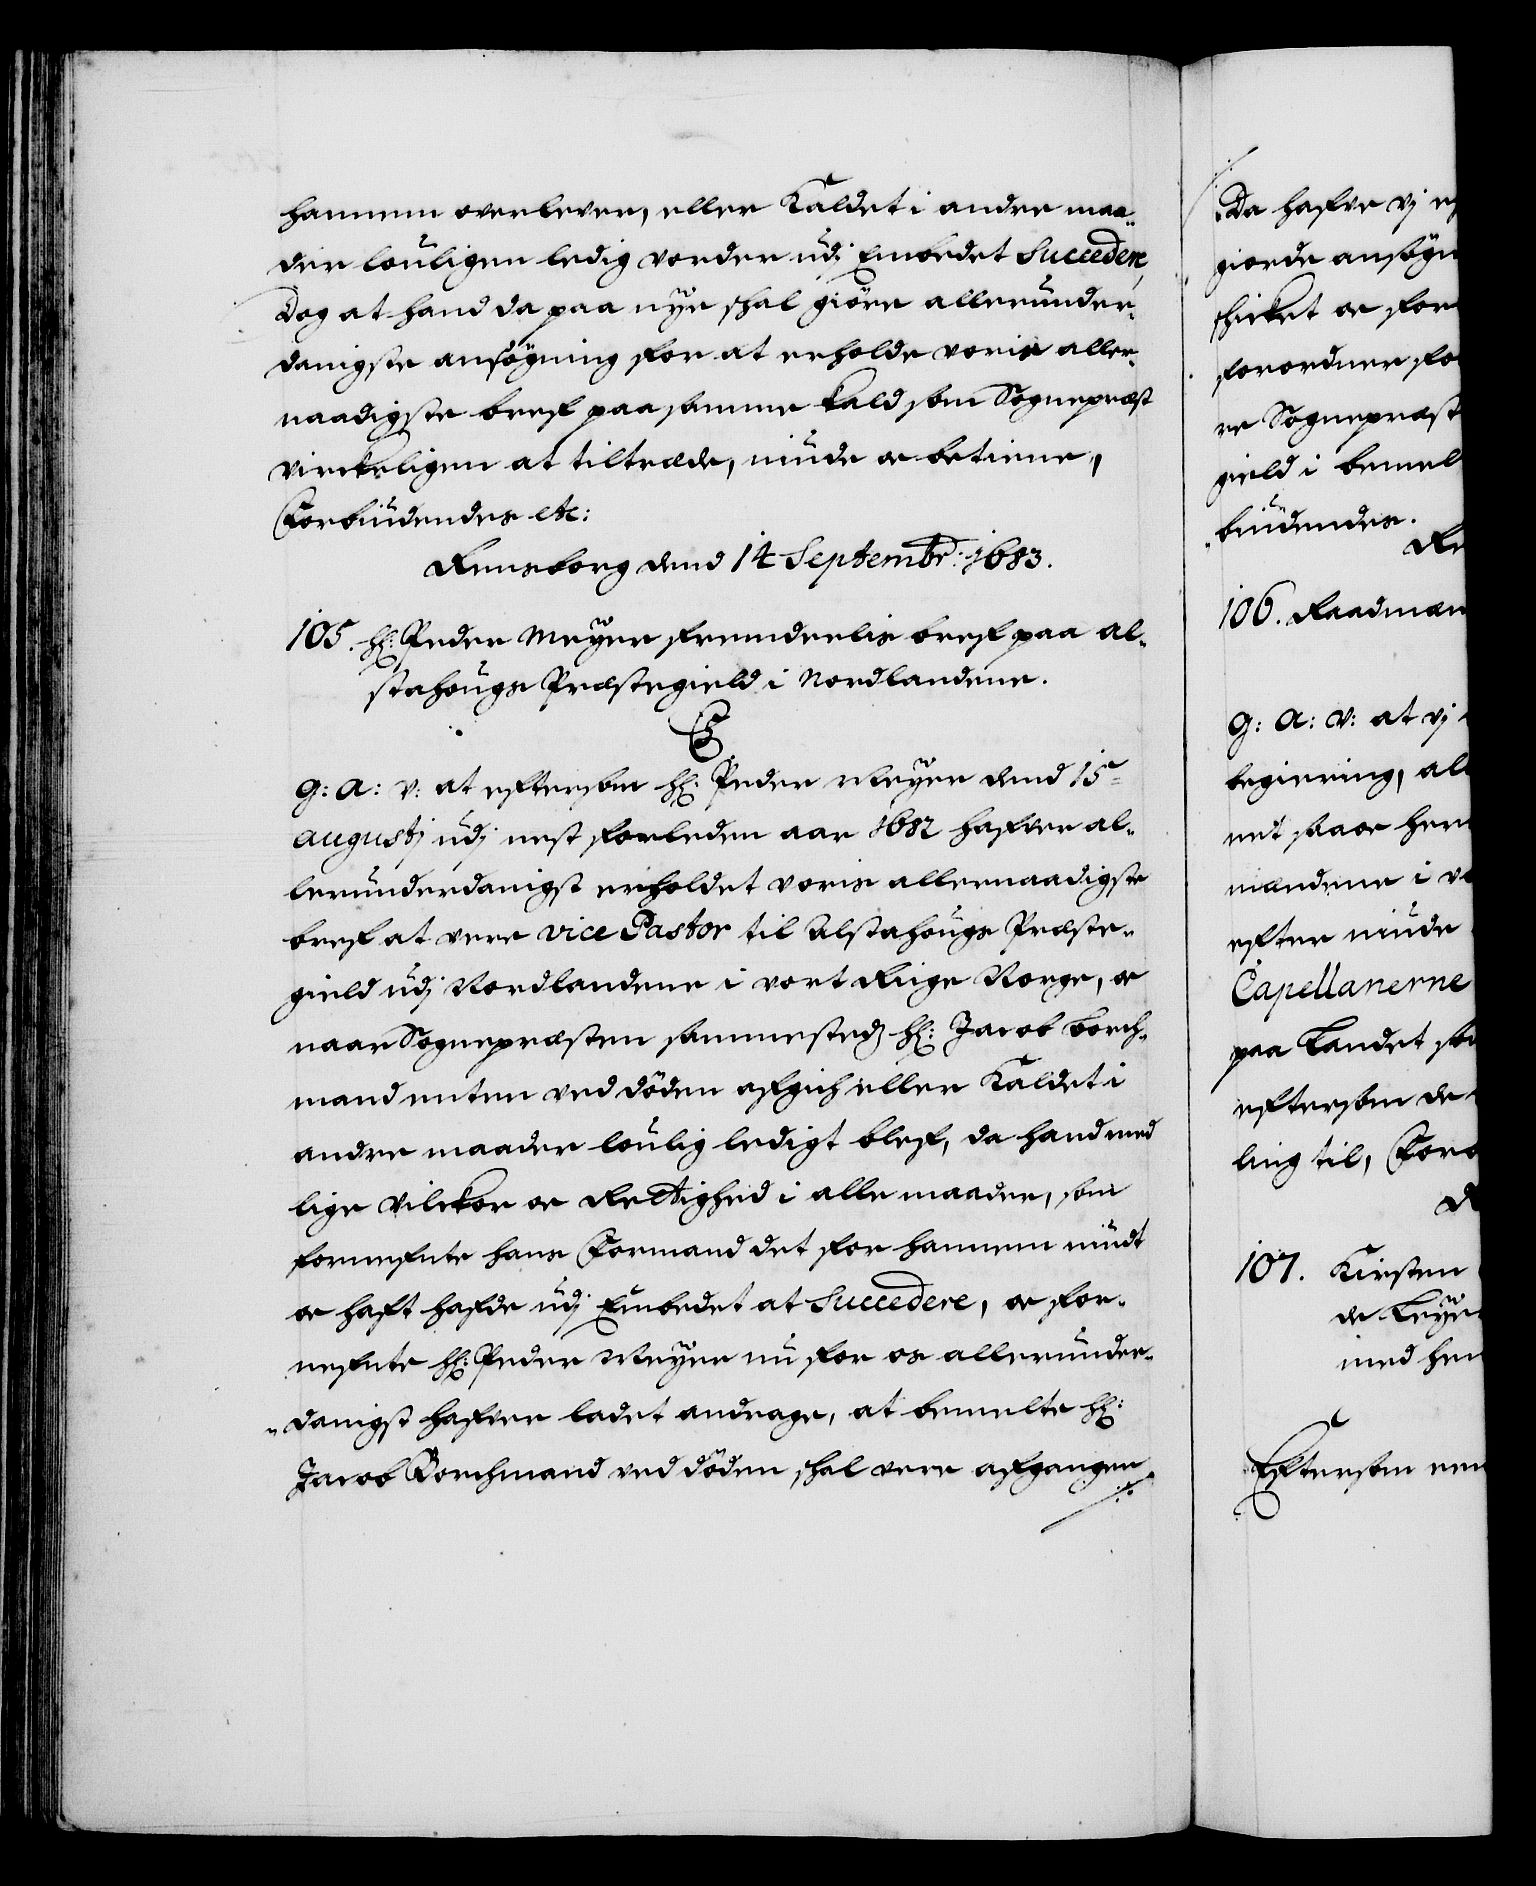 hannem overlever, eller Kaldet i andre maa-
der louligen ledig vorder udj Embedet Succedere,
Dog at hand da paa nye skal giöre allerunder-
danigste ansögning for at erholde voris aller-
naadigste bref paa samme kald som Sognepræst
virckeligen at tiltræde, niude oc betiene,
Forbiudendes etc:
Rensborg dend 14 Septembr: 1683.
105. Hr: Peder Meyer fremdeelis bref paa Al-
stahougs Præstegield i Nordlandene.
C5
G: A: V: at eftersom Hr: Peder Meyer dend 15
Augustj udj nest forleden aar 1682 hafver al-
lerunderdanigst erholdet voris allernaadigste
bref at vere vice Pastor til Alstahougs Præste-
gield udj Nordlandene i vort Rige Norge, oc
naar Sognepræsten sammestedz Hr: Jacob Borch-
mand enten ved döden afgich eller Kaldet i
andre maader loulig ledigt blef, da hand med
lige vilckor oc Rettighed i alle maader, som
fornefnte hans Formand det for hannem niudt
oc haft hafde udj Embedet at Succedere, oc for-
nefnte Hr: Peder Meyer nu for os allerunder-
danigst hafver ladet andrage, at bemelte Hr:
Jacob Borchmand ved döden skal vere afgangen
Da hafve vj
giorde ansögn
skicket oc for
forordner fo
re Sognepræst
gield i bemel
biudendes.
Re
106. Raadmæn
G: A: V: at vj
begiering, al
net saa oc her
mændene i
efter niude
Capellanerne
paa Landet so
eftersom de
ling til, Forb
R
107. Kirsten
de Leye
med hen
Eftersom